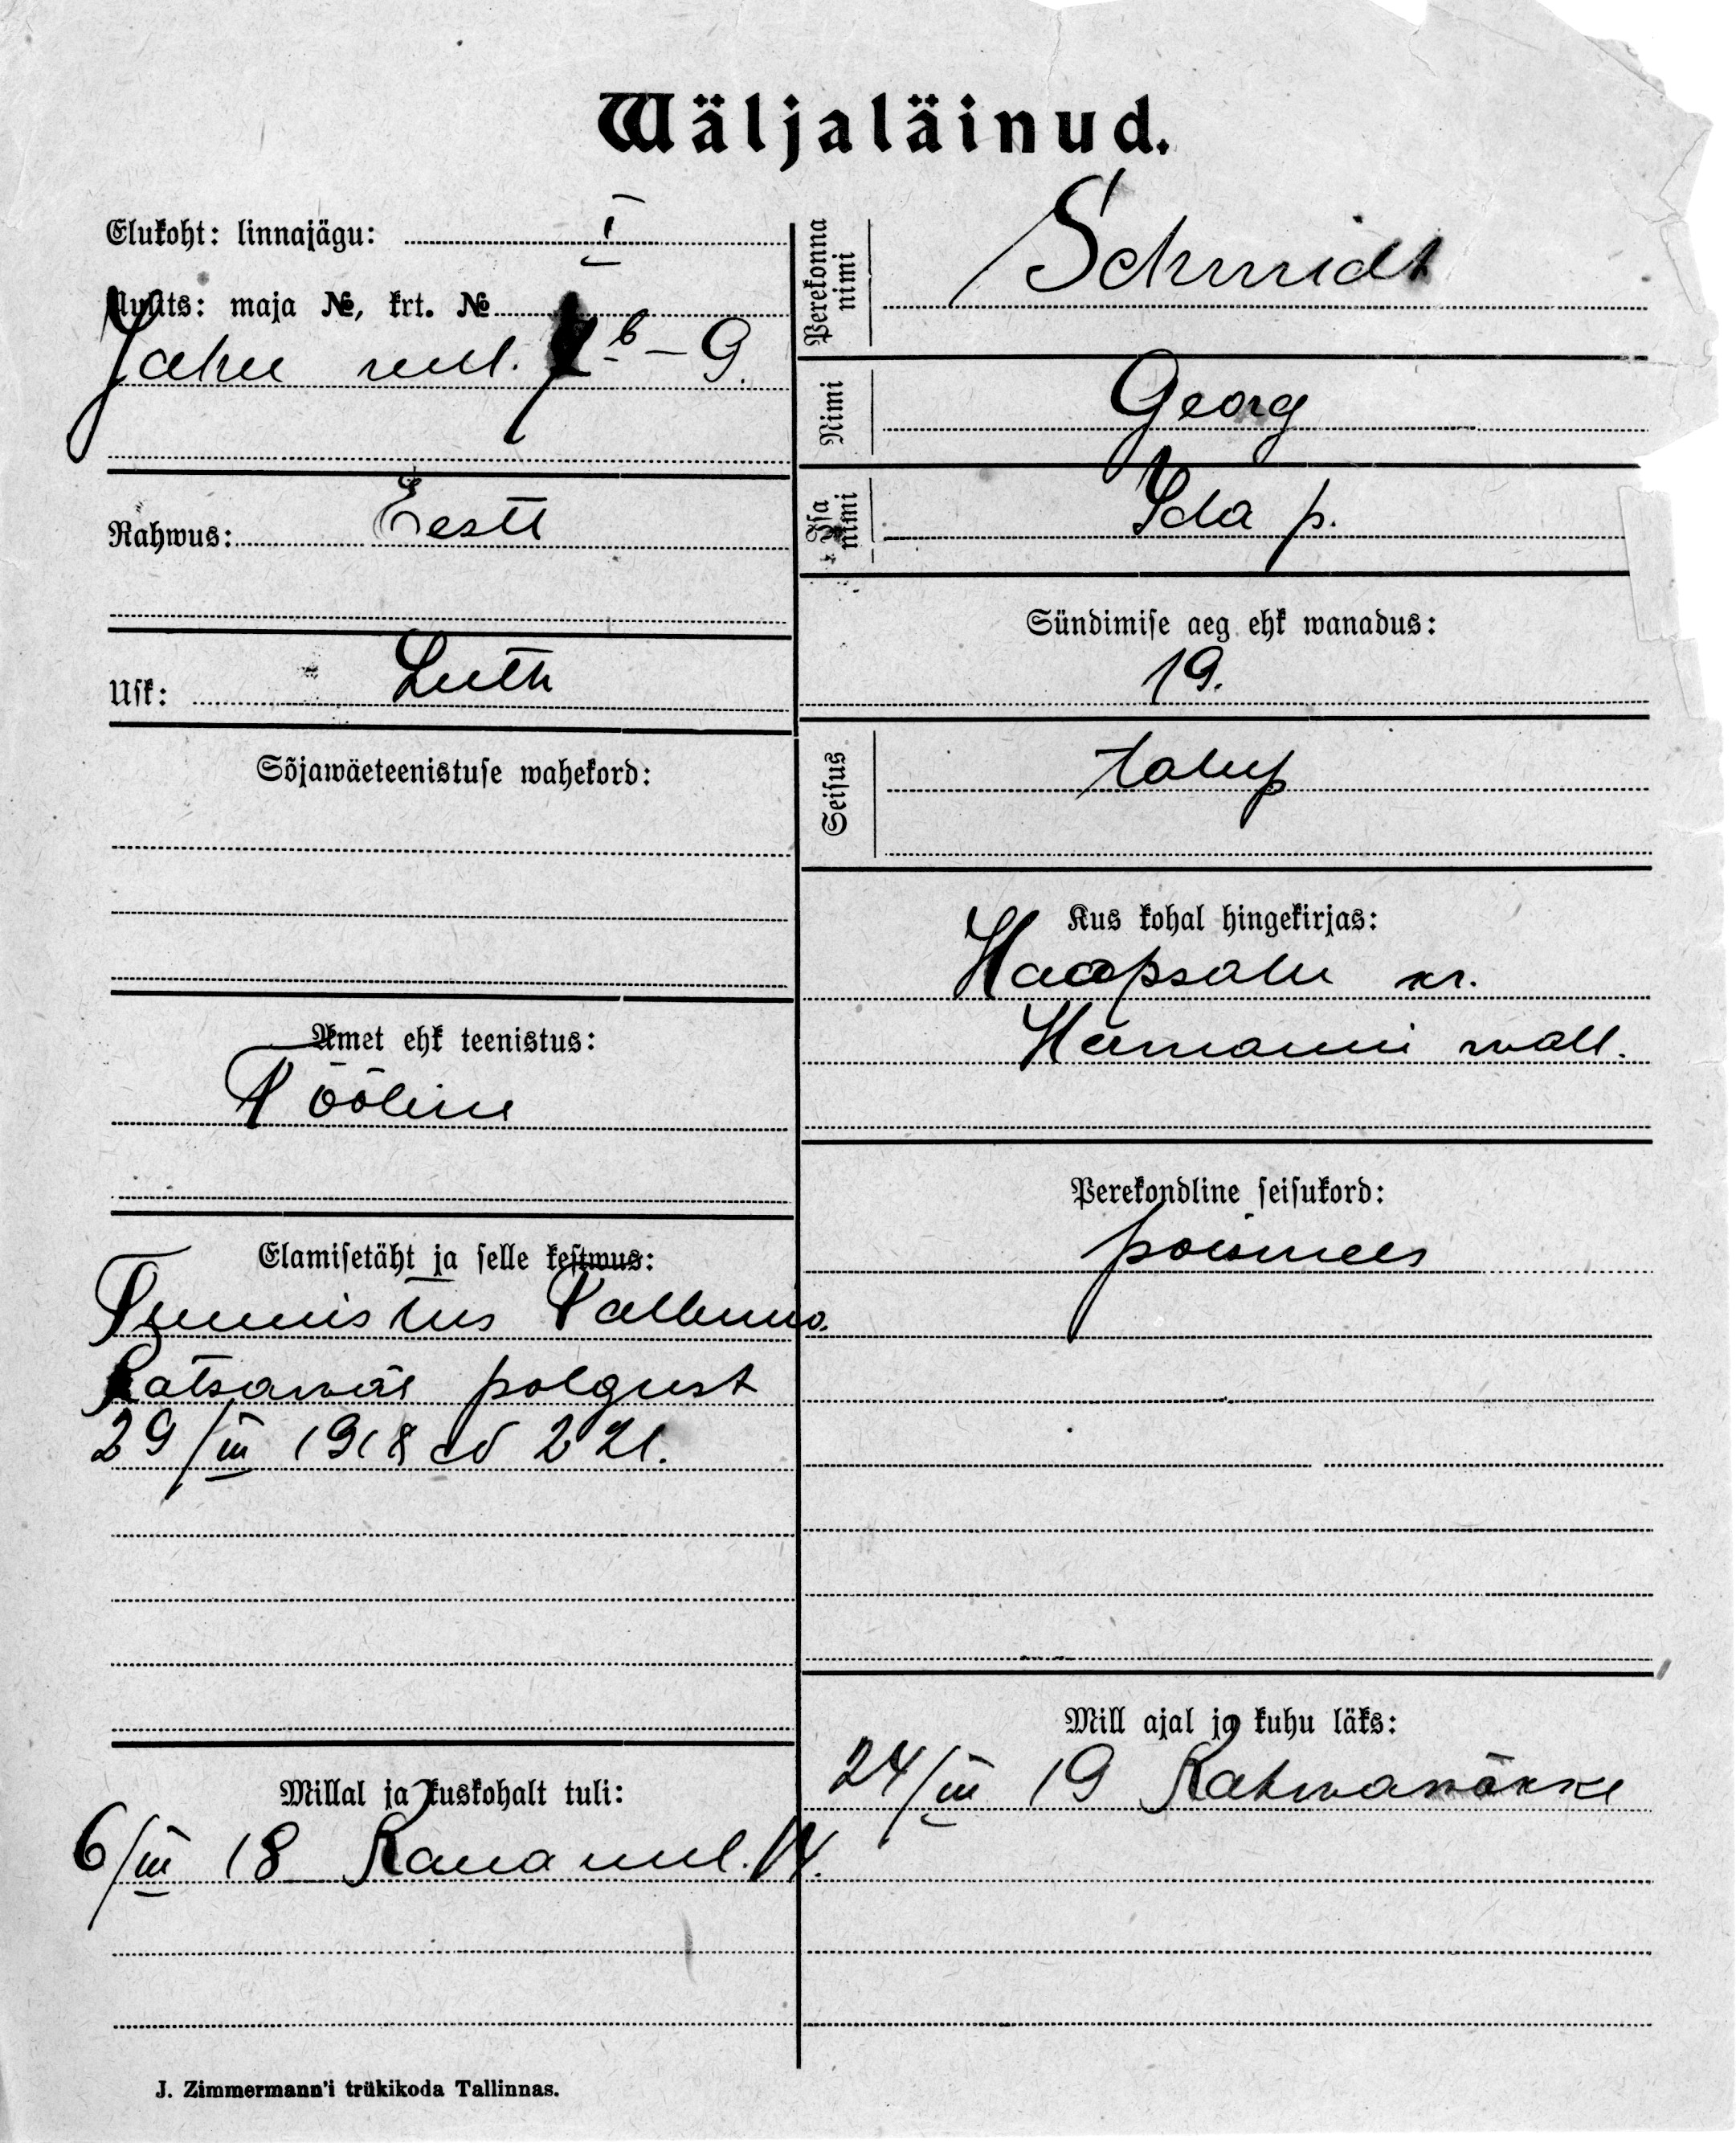 Wäljaläinud.
Elukoht: linnajägu: I
Uulits: maja №, krt. №
Jahu uul. b – 9.
Rahwus: Eesti
Usk: Luth
Sõjawäeteenistuse wahekord:
Amet ehk teenistus:
Tööline
Elamisetäht ja selle kestwus:
Tunnistus Tallinna
Ratsawäe polgust
29/III 1918 № 221.
Millal ja kuskohalt tuli:
6/III 18 Rana uul. 14.
J. Zimmermann'i trükikoda Tallinnas.
Perekonna nimi Schmidt
Nimi Georg
Isa nimi Ida p.
Sündimise aeg ehk wanadus:
19.
Seisus talup
Kus kohal hingekirjas:
Haapsalu kr.
wall.
Perekondline seisukord:
poismees
Mill ajal ja kuhu läks:
24/III 19 Rahwawäkke